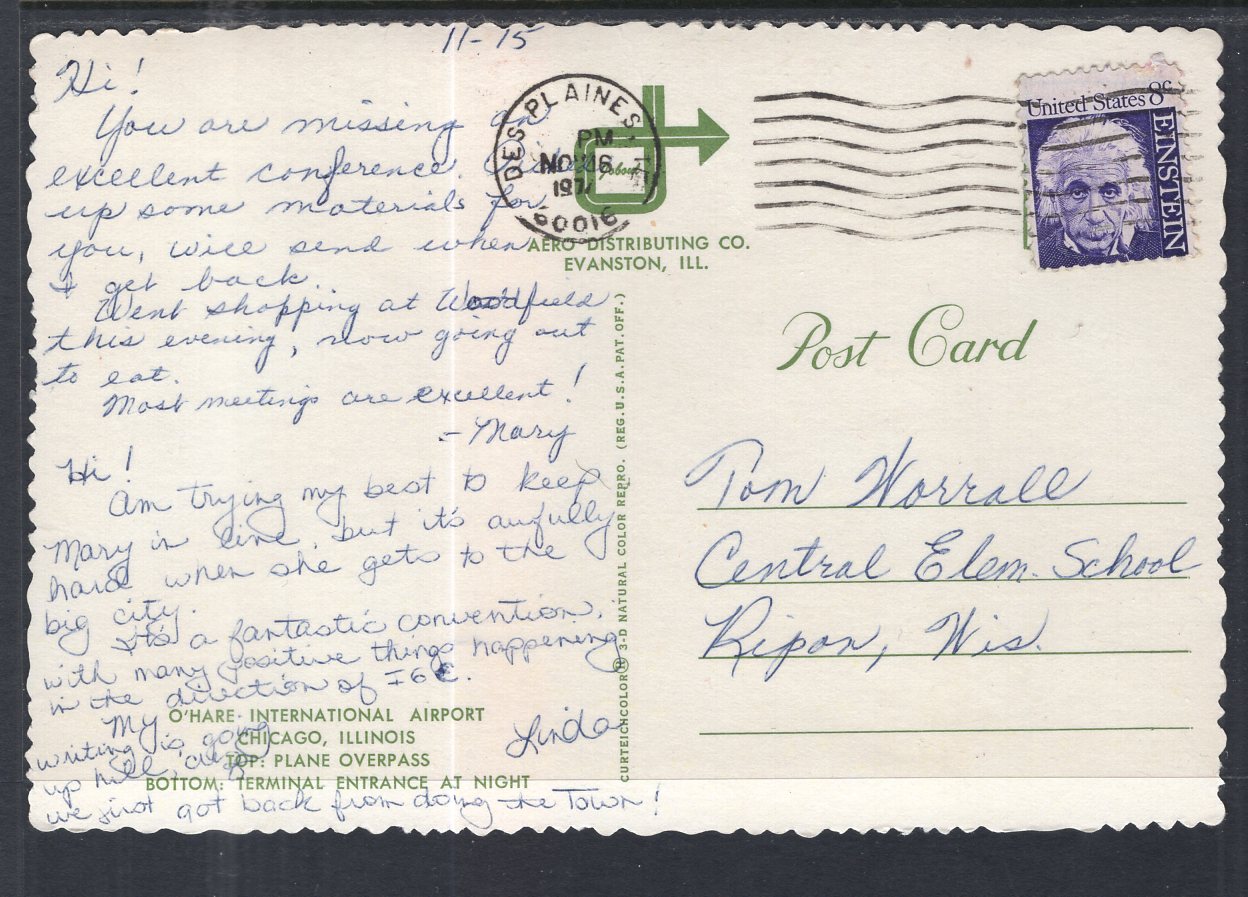 11-15
Hi!
You are missing an
excellent conference.
up some materials for
you, will send when
I get back.
Went shopping at Woodfield
this evening, now going out
to eat.
Most meetings are excellent!
- Mary
Hi!
Am trying my best to keep
Mary in line, but it's awfully
hard when she gets to the
big city.
It's a fantastic convention,
with many positive things happening
in the direction of IGE.
My
writing is going
up hill, cuz
we just got back from doing the Town!
Linda
O'HARE INTERNATIONAL AIRPORT
CHICAGO, ILLINOIS
TOP: PLANE OVERPASS
BOTTOM: TERMINAL ENTRANCE AT NIGHT
DES PLAINES,
PM
NOV 16
197
60016
AERO DISTRIBUTING CO.
EVANSTON, ILL.
CURTEICHCOLOR® 3-D NATURAL COLOR REPRO. (REG. U.S.A. PAT. OFF.)
United States 8c
EINSTEIN
Post Card
Tom Worrall
Central Elem. School
Ripon, Wis.